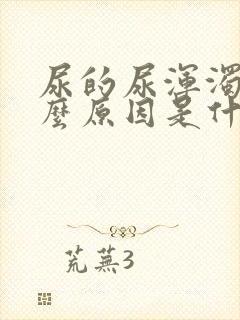 尿的尿渾濁
麼原因是什
荒蕪3